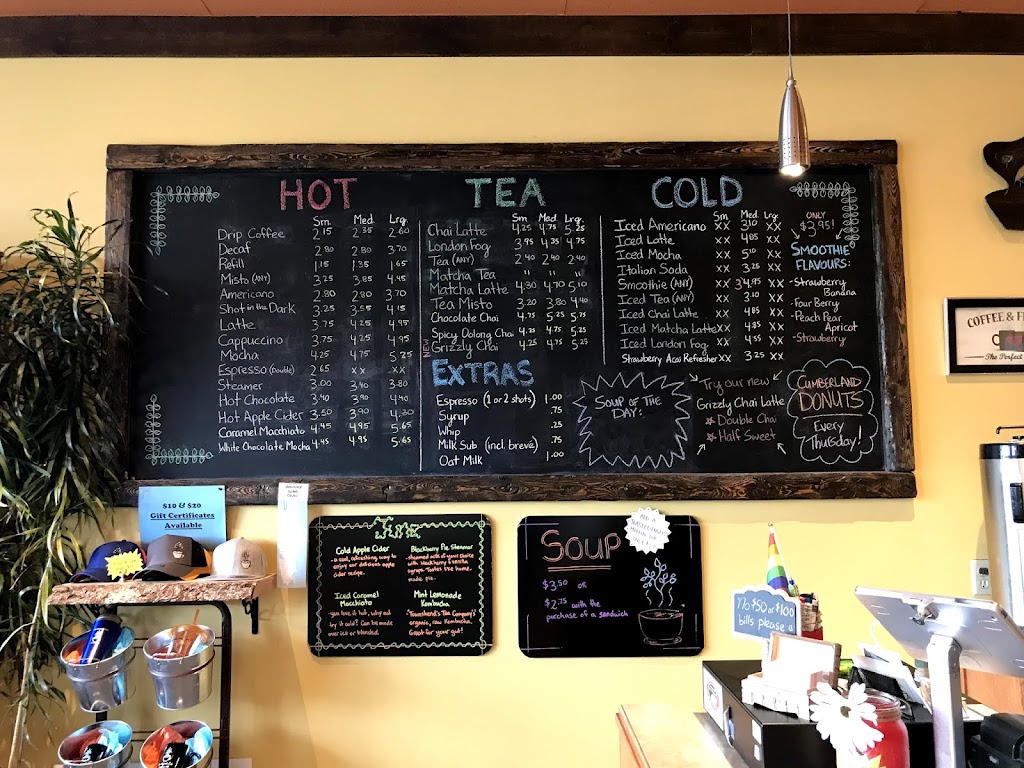 HOT
Sm. Med. Lrg.
Drip Coffee 2.15 2.35 2.60
Decaf 2.80 2.80 3.70
Refill 1.15 1.35 1.65
Misto (ANY) 3.25 3.85 4.45
Americano 2.80 2.80 3.70
Shot in the Dark 3.25 3.55 4.15
Latte 3.75 4.25 4.95
Cappuccino 3.75 4.25 4.95
Mocha 4.25 4.75 5.25
Espresso (Double) 2.65 xx xx
Steamer 3.00 3.40 3.80
Hot Chocolate 3.40 3.90 4.40
Hot Apple Cider 3.50 3.90 4.30
Caramel Macchiato 4.45 4.95 5.65
White Chocolate Mocha 4.45 4.95 5.65
TEA
Sm Med Lrg.
Chai Latte 4.25 4.75 5.25
London Fog 3.95 4.35 4.75
Tea (ANY) 2.40 2.40 2.40
Matcha Tea " " "
Matcha Latte 4.30 4.70 5.10
Tea Misto 3.20 3.80 4.40
Chocolate Chai 4.75 5.25 5.75
Spicy Oolong Chai 4.25 4.75 5.25
NEW
Grizzly Chai 4.25 4.75 5.25
EXTRAS
Espresso (1 or 2 shots) 1.00
Syrup .75
Whip .25
Milk Sub (incl. breve) .75
Oat Milk 1.00
COLD
Sm. Med. Lrg.
Iced Americano xx 3.10 xx
Iced Latte xx 4.85 xx
Iced Mocha xx 5.10 xx
Italian Soda xx 3.25 xx
Smoothie (ANY) xx 3.95 xx
Iced Tea (ANY) xx 3.10 xx
Iced Chai Latte xx 4.85 xx
Iced Matcha Latte xx 4.85 xx
Iced London Fog xx 4.55 xx
Strawberry Acai Refresher xx 3.25 xx
ONLY
$3.95!
SMOOTHIE
FLAVOURS:
- Strawberry
Banana
- Four Berry
- Peach Pear
Apricot
- Strawberry
SOUP OF THE
DAY:
Try our new
Grizzly Chai Latte
Double Chai
Half Sweet
CUMBERLAND
DONUTS
Every
Thursday!
COFFEE & 
The Perfect
$10 & $20
Gift Certificates
Available
Cold Apple Cider
- a cool, refreshing way to
enjoy our delicious apple
cider recipe.
Blackberry Pie Steamer
- steamed milk of your choice
with blackberry & vanilla
syrups. Tastes like home
made pie.
Iced Caramel
Macchiato
you love it hot, why not
try it cold? Can be made
over ice or blended.
Mint Lemonade
Kombucha
- Townshend's Tea Company's
organic, raw Kombucha.
Great for your gut!
SOUP
$3.50 or
$2.75 with the
purchase of a sandwich
No $50 or $100
bills please